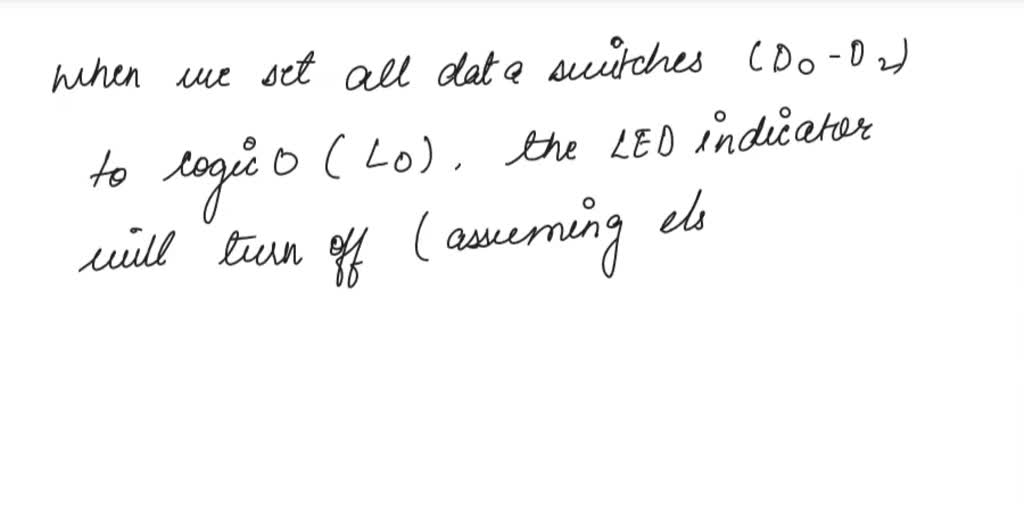 when we set all data switches (D0-D2)
to logic 0 (L0), the LED indicator
will turn off (assuming els